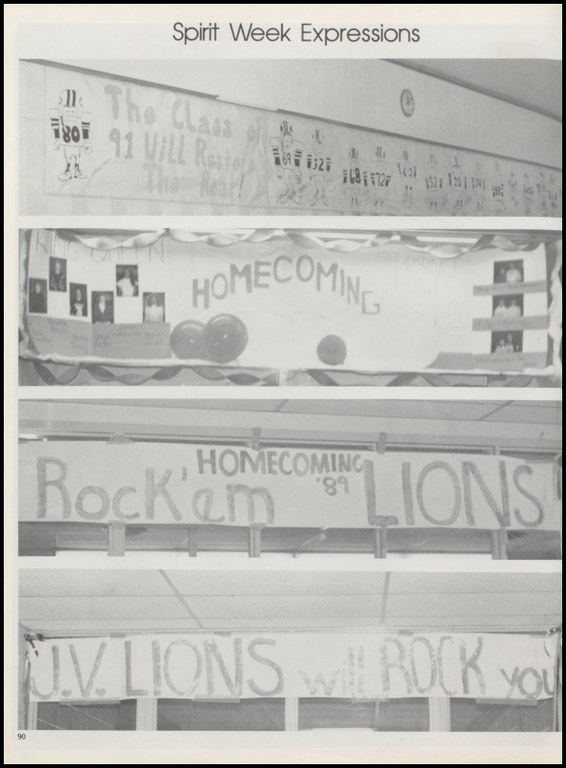 Spirit Week Expressions
80
The Class of
91 Will Restore
The Roar!
89
32
68
72
HOMECOMING
HOMECOMING
'89
Rock'em LIONS
J.V. LIONS will ROCK you
90